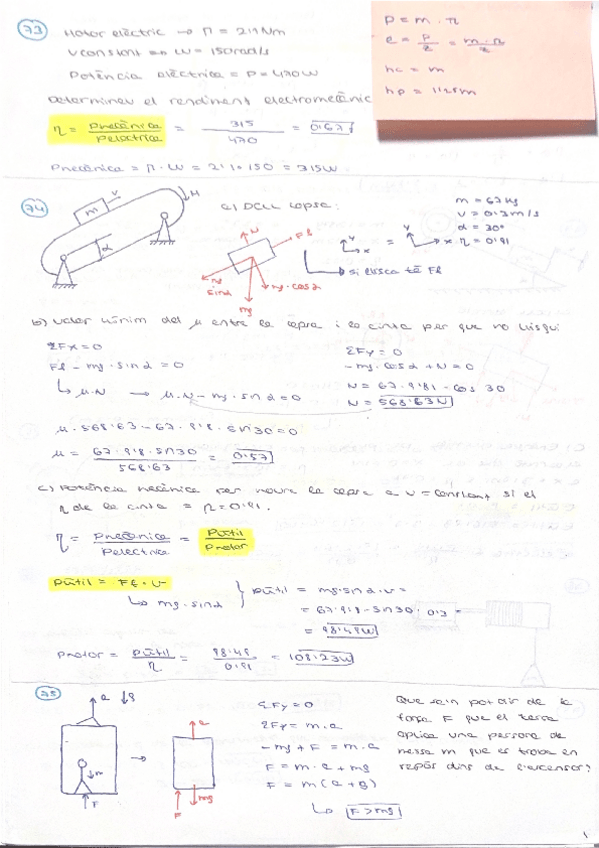 73 Motor elèctric → Γ = 2'1 Nm
v constant → ω = 150 rad/s
Potència elèctrica = P = 470W
Determineu el rendiment electromecànic
η = Pmecànica / Pelèctrica = 315 / 470 = 0'67
Pmecànica = Γ · ω = 2'1 · 150 = 315W
P = m · n
e = P/z = m · n / z
hc = m
hp = 1'25m
74
m
v
M
α
a) DCLL capsa:
N
Ff
mg sinα
mg · cosα
mg
y
x
=
y
x
si llisca té Ff
m = 67 kg
v = 0'3 m/s
α = 30°
η = 0'91
b) Valor mínim del μ entre la capsa i la cinta per que no llisqui
ΣFx = 0
Ff - mg · sin α = 0
↳ μ · N → μ · N - mg · sin α = 0
ΣFy = 0
- mg · cos α + N = 0
N = 67 · 9'81 · cos 30
N = 568'63N
μ · 568'63 - 67 · 9'8 · sin30 = 0
μ = 67 · 9'8 · sin30 / 568'63 = 0'57
c) Potència mecànica per moure la capsa a v = constant si el
η de la cinta = η = 0'91.
η = Pmecànica / Pelèctrica = Pútil / Pmotor
Pútil = Ff · v
↳ mg · sinα
Pútil = mg · sin α · v =
= 67 · 9'8 · sin30 · 0'3 =
= 98'49W
Pmotor = Pútil / η = 98'49 / 0'91 = 108'23W
75
a
g
m
F
→
a
F
mg
ΣFy = 0
ΣFy = m · a
- mg + F = m · a
F = m · a + mg
F = m (a + g)
↳ F > mg
Que se'n pot dir de la
força F que el terra
aplica una persona de
massa m que es troba en
repòs dins de l'ascensor?